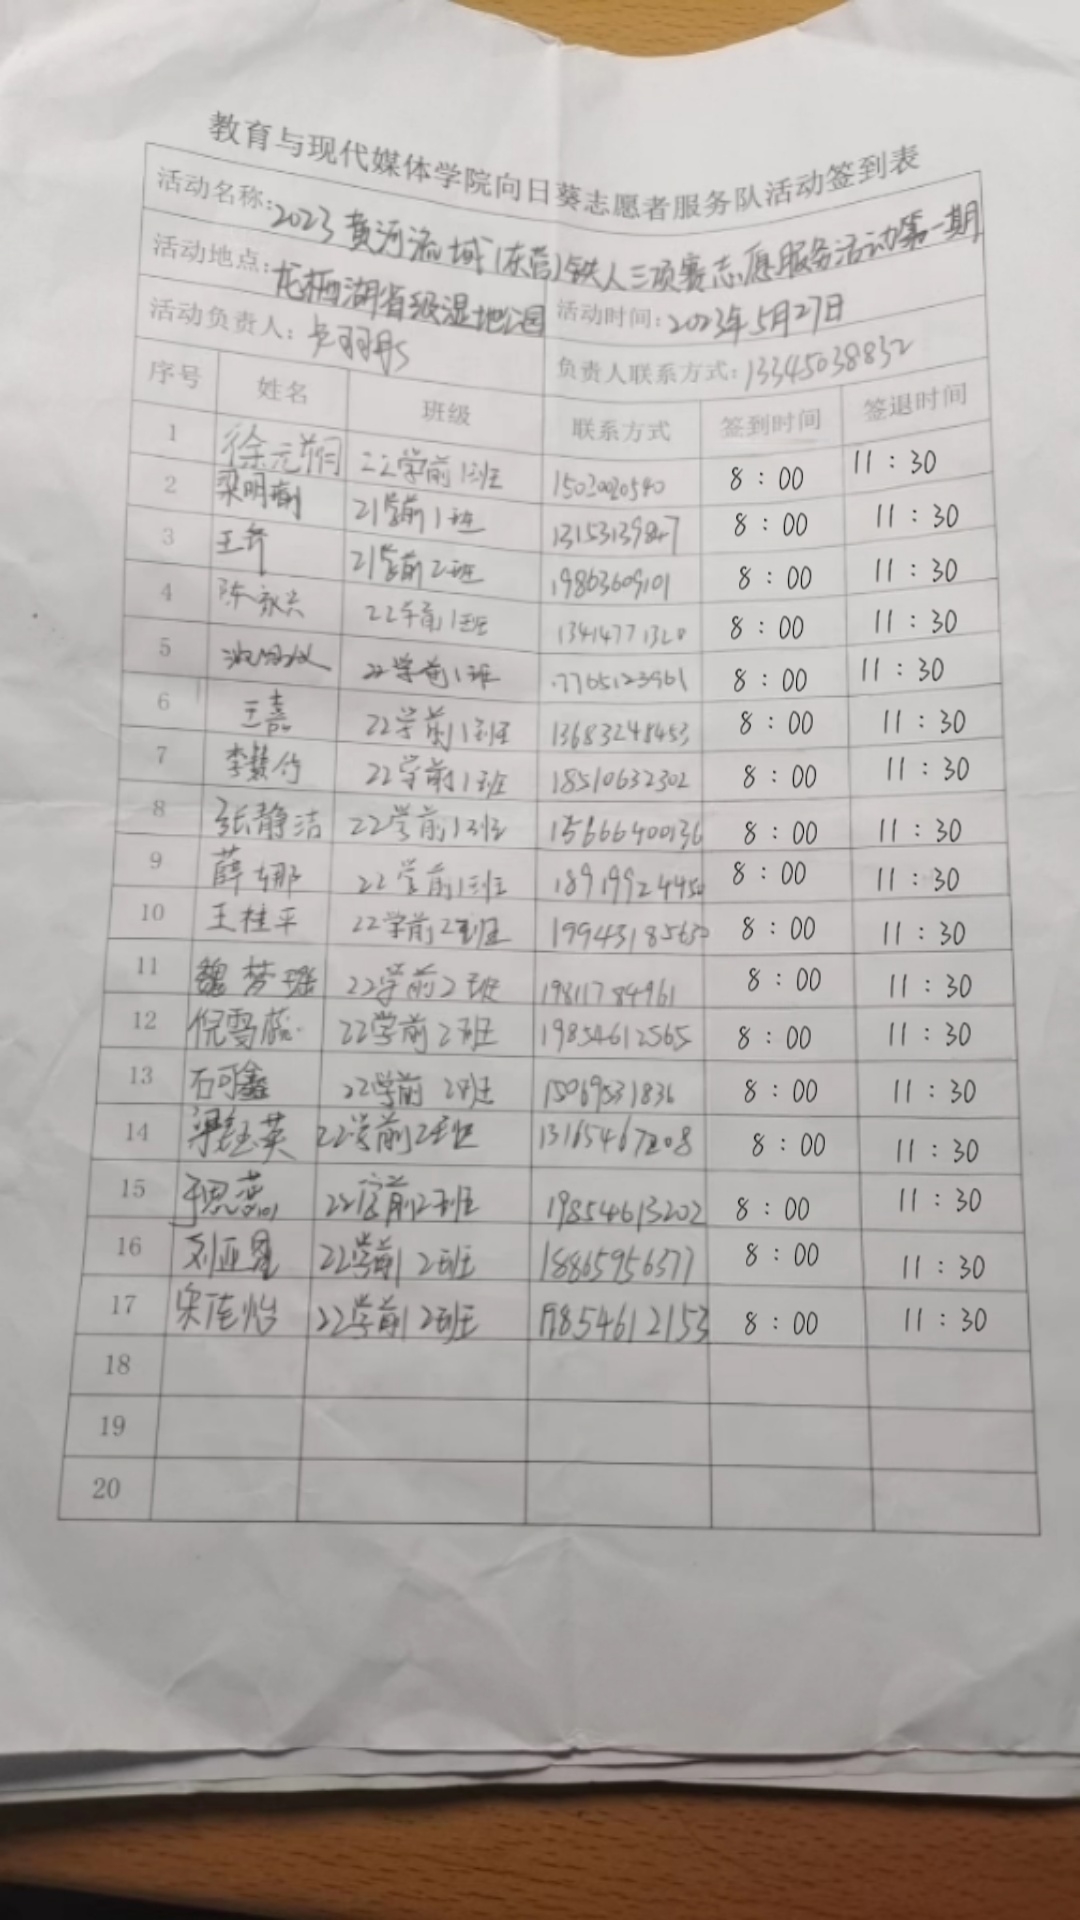 教育与现代媒体学院向日葵志愿者服务队活动签到表
活动名称:2023黄河流域(东营)铁人三项赛志愿服务活动第一期
活动地点:龙栖湖省级湿地公园 活动时间:2023年5月27日
活动负责人: 负责人联系方式:13345038832
序号 姓名 班级 联系方式 签到时间 签退时间
1 徐元 22学前1班 8:00 11:30
2 梁明 21学前1班 8:00 11:30
3 21学前2班 19863609101 8:00 11:30
4 陈永兴 22学前1班 8:00 11:30
5 22学前1班 8:00 11:30
6 王嘉 22学前1班 13683248453 8:00 11:30
7 李慧竹 22学前1班 18510632302 8:00 11:30
8 张静洁 22学前1班 15666400136 8:00 11:30
9 薛 娜 22学前1班 8:00 11:30
10 王桂平 22学前2班 8:00 11:30
11 魏梦瑶 22学前2班 19811784961 8:00 11:30
12 倪雪 22学前2班 19854612565 8:00 11:30
13 石可鑫 22学前2班 15069531836 8:00 11:30
14 梁钰英 22学前2班 13165467208 8:00 11:30
15 于思 22学前2班 19854613202 8:00 11:30
16 刘亚 22学前2班 18865956377 8:00 11:30
17 宋佳怡 22学前2班 19854612153 8:00 11:30
18
19
20